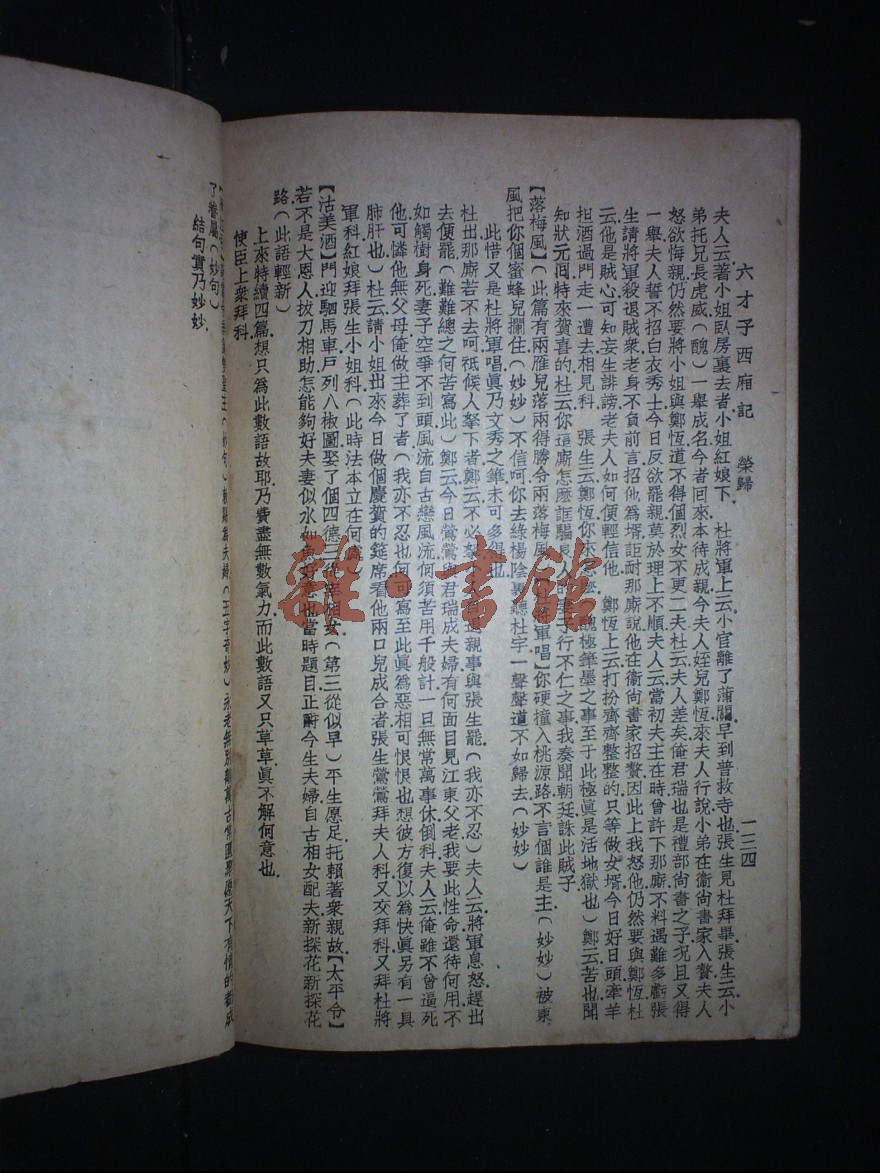 六才子西廂記 榮歸 一三四
夫人云著小姐臥房裏去者小姐紅娘下 杜將軍上云小官離了蒲關早到普救寺也張生見杜拜畢張生云小
弟托兄長虎威(醜)一舉成名今者回來本待成親今夫人姪兒鄭恆來夫人行說小弟在衞尙書家入贅夫人
怒欲悔親仍然要將小姐與鄭恆道不得個烈女不更二夫杜云夫人差矣俺君瑞也是禮部尙書之子況且又得
一舉夫人誓不招白衣秀士今日反欲罷親莫於理上不順夫人云當初夫主在時曾許下那廝不料遇難多虧張
生請將軍殺退賊衆老身不負前言招他爲壻詎耐那廝說他在衞尙書家招贅因此上我怒他仍然要與鄭恆杜
云他是賊心可知妄生誹謗老夫人如何便輕信他 鄭恆上云打扮齊齊整整的只等做女壻今日好日頭牽羊
担酒過門走一遭去相見科 張生云鄭恆你來 醜極筆墨之事至于此極眞是活地獄也)鄭云苦也聞
知狀元囘特來賀喜的杜云你這廝怎麽誆騙良人的妻子行不仁之事我奏聞朝廷誅此賊子
【落梅風】(此篇有兩雁兒落兩得勝令兩落梅風)【杜將軍唱】你硬撞入桃源路不言個誰是主(妙妙)被東
風把你個蜜蜂兒攔住(妙妙)不信呵你去綠楊陰裏聽杜宇一聲聲道不如歸去(妙妙)
此惜又是杜將軍唱眞乃文秀之筆未可多得也
杜云那廝若不去呵祗候人拏下者鄭云不必拏 親事與張生罷(我亦不忍)夫人云將軍息怒趕出
去便罷(難難總之何苦寫此)鄭云今日鶯鶯與君瑞成夫婦有何面目見江東父老我要此性命還待何用不
如觸樹身死妻子空爭不到頭風流自古戀風流何須苦用千般計一旦無常萬事休倒科夫人云俺雖不曾逼死
他可憐他無父母俺做主葬了者(我亦不忍也何可寫至此眞爲惡相可恨恨也想彼方復以爲快眞另有一具
肺肝也)杜云請小姐出來今日做個慶賀的筵席看他兩口兒成合者張生鶯鶯拜夫人科又交拜科又拜杜將
軍科紅娘拜張生小姐科(此時法本立在何處
【沽美酒】門迎駟馬車戶列八椒圖娶了個四德三從宰相女(第三從似早)平生愿足托賴著衆親故【太平令】
若不是大恩人拔刀相助怎能夠好夫妻似水如魚好意也當時題目正酬今生夫婦自古相女配夫新探花新探花
路(此語輕新)
上來特續四篇想只爲此數語故耶乃費盡無數氣力而此數語又只草草眞不解何意也
使臣上衆拜科
永老無別離萬古常團聚愿天下有情的都成
了眷屬(妙句)
結句實乃妙妙